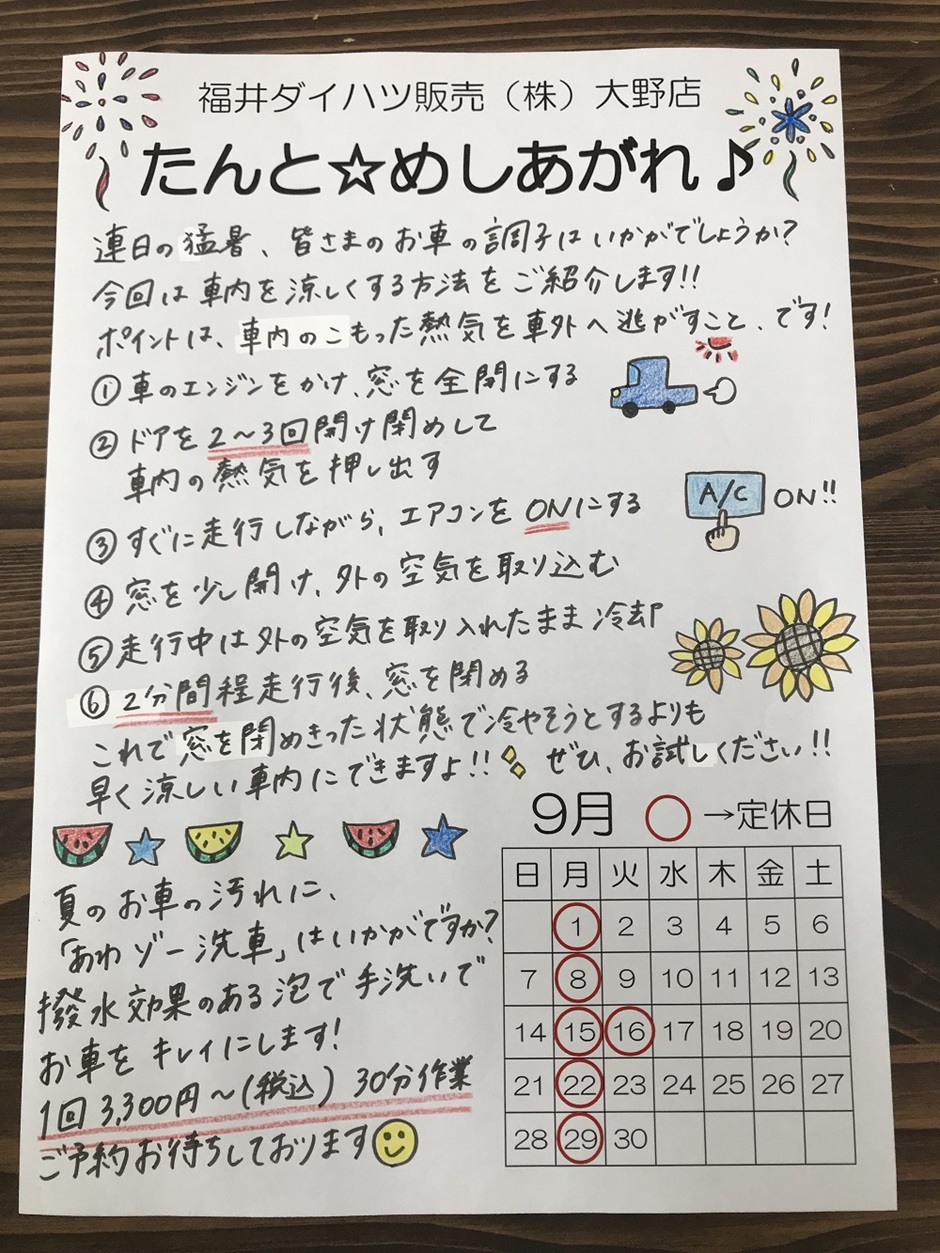 福井ダイハツ販売（株）大野店
たんと☆めしあがれ♪
連日の猛暑、皆さまのお車の調子はいかがでしょうか?
今回は車内を涼しくする方法をご紹介します!!
ポイントは、車内のこもった熱気を車外へ逃がすこと、です!
①車のエンジンをかけ、窓を全開にする
②ドアを2〜3回開け閉めして
車内の熱気を押し出す
③すぐに走行しながら、エアコンをONにする
A/C ON!!
④窓を少し開け、外の空気を取り込む
⑤走行中は外の空気を取り入れたまま冷却
⑥2分間程走行後、窓を閉める
これで窓を閉めきった状態で冷やそうとするよりも
早く涼しい車内にできますよ!! ぜひ、お試しください!!
夏のお車の汚れに、
「あわゾー洗車」はいかがですか?
撥水効果のある泡で手洗いで
お車をキレイにします!
1回3,300円〜(税込) 30分作業
ご予約お待ちしております
9月 ○→定休日
日 月 火 水 木 金 土
1 2 3 4 5 6
7 8 9 10 11 12 13
14 15 16 17 18 19 20
21 22 23 24 25 26 27
28 29 30